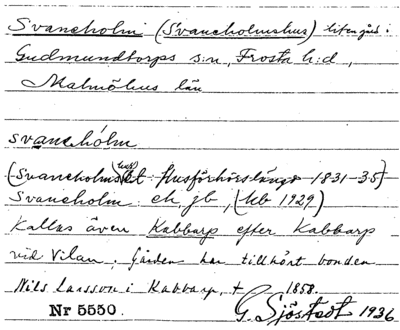 Svaneholm (Svaneholmshus) liten gård i
Gudmundtorps s:n, Frosta h:d,
Malmöhus län
svanehólm
(Svaneholmshuset: Husförhörslängd 1831-35)
Svaneholm: ek, jb, (kb 1929)
Kallas även Kabbarp efter Kabbarp
vid Vilan. Gården har tillhört bonden
Nils Larsson i Kabbarp, † 1858.
Nr 5550. G. Sjöstedt 1936